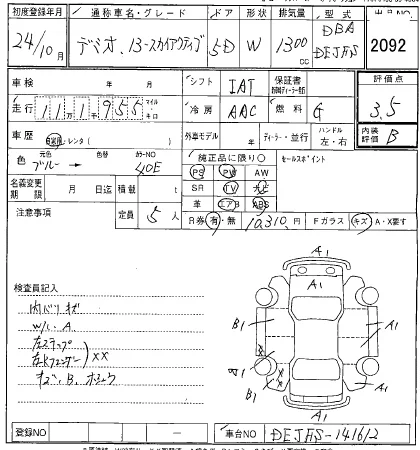 初度登録年月 通称車名・グレード ドア 形状 排気量 型式 出品NO
24/10月 デミオ、13-スカイアクティブ 5D W 1300cc DBA DEJFS 2092
車検 年 月 シフト IAT 保証書 評価点
走行 111千955 マイル キロ 冷房 AAC 燃料 G 3.5
車歴 自家用・レンタ( ) 外車モデル 年 ディーラー・並行 ハンドル 左・右 内装評価 B
色 元色 ブルー → 色替 カラーNO 40E 純正品に限り○ セールスポイント
PS PW AW
名義変更期限 月 日迄 積載 t SR TV ナビ
注意事項 定員 5人 革 エアB ABS
R券 有・無 10,310円 Fガラス キズ A・X要す
A1
検査員記入 A1
内バリキズ
W/L. A B1 A1
左ステップ
左Rフェンダー )××
キズ、B、ホシュウ B1 A1
A1
登録NO 車台NO DEJFS-141612